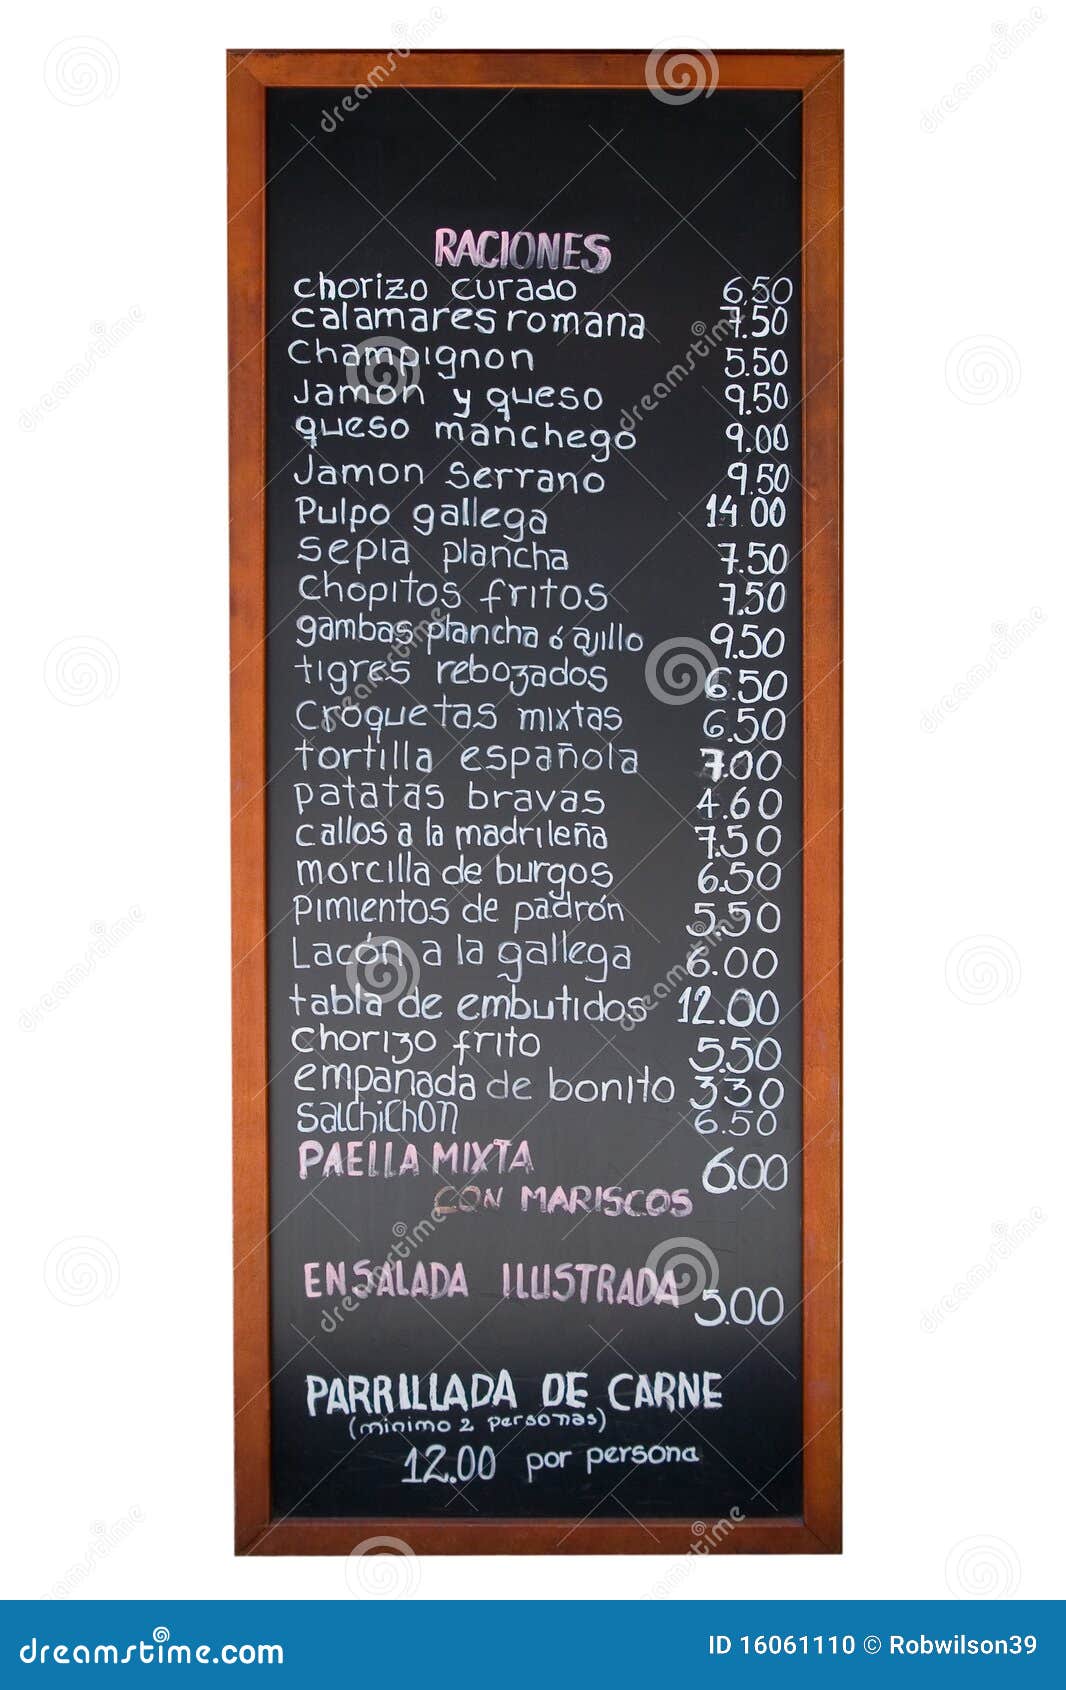 RACIONES
chorizo curado 6,50
calamares romana 7.50
Champignon 5.50
Jamon y queso 9.50
queso manchego 9.00
Jamon serrano 9.50
Pulpo gallega 14 00
sepia plancha 7.50
chopitos fritos 7.50
gambas plancha ó ajillo 9.50
tigres rebozados 6.50
croquetas mixtas 6.50
tortilla española 7.00
patatas bravas 4.60
callos a la madrileña 7.50
morcilla de burgos 6.50
pimientos de padrón 5.50
Lacón a la gallega 6.00
tabla de embutidos 12.00
chorizo frito 5.50
empanada de bonito 3.30
salchichon 6.50
PAELLA MIXTA 6.00
CON MARISCOS
ENSALADA ILUSTRADA 5.00
PARRILLADA DE CARNE
(minimo 2 personas)
12.00 por persona
dreamstime.com
ID 16061110 © Robwilson39